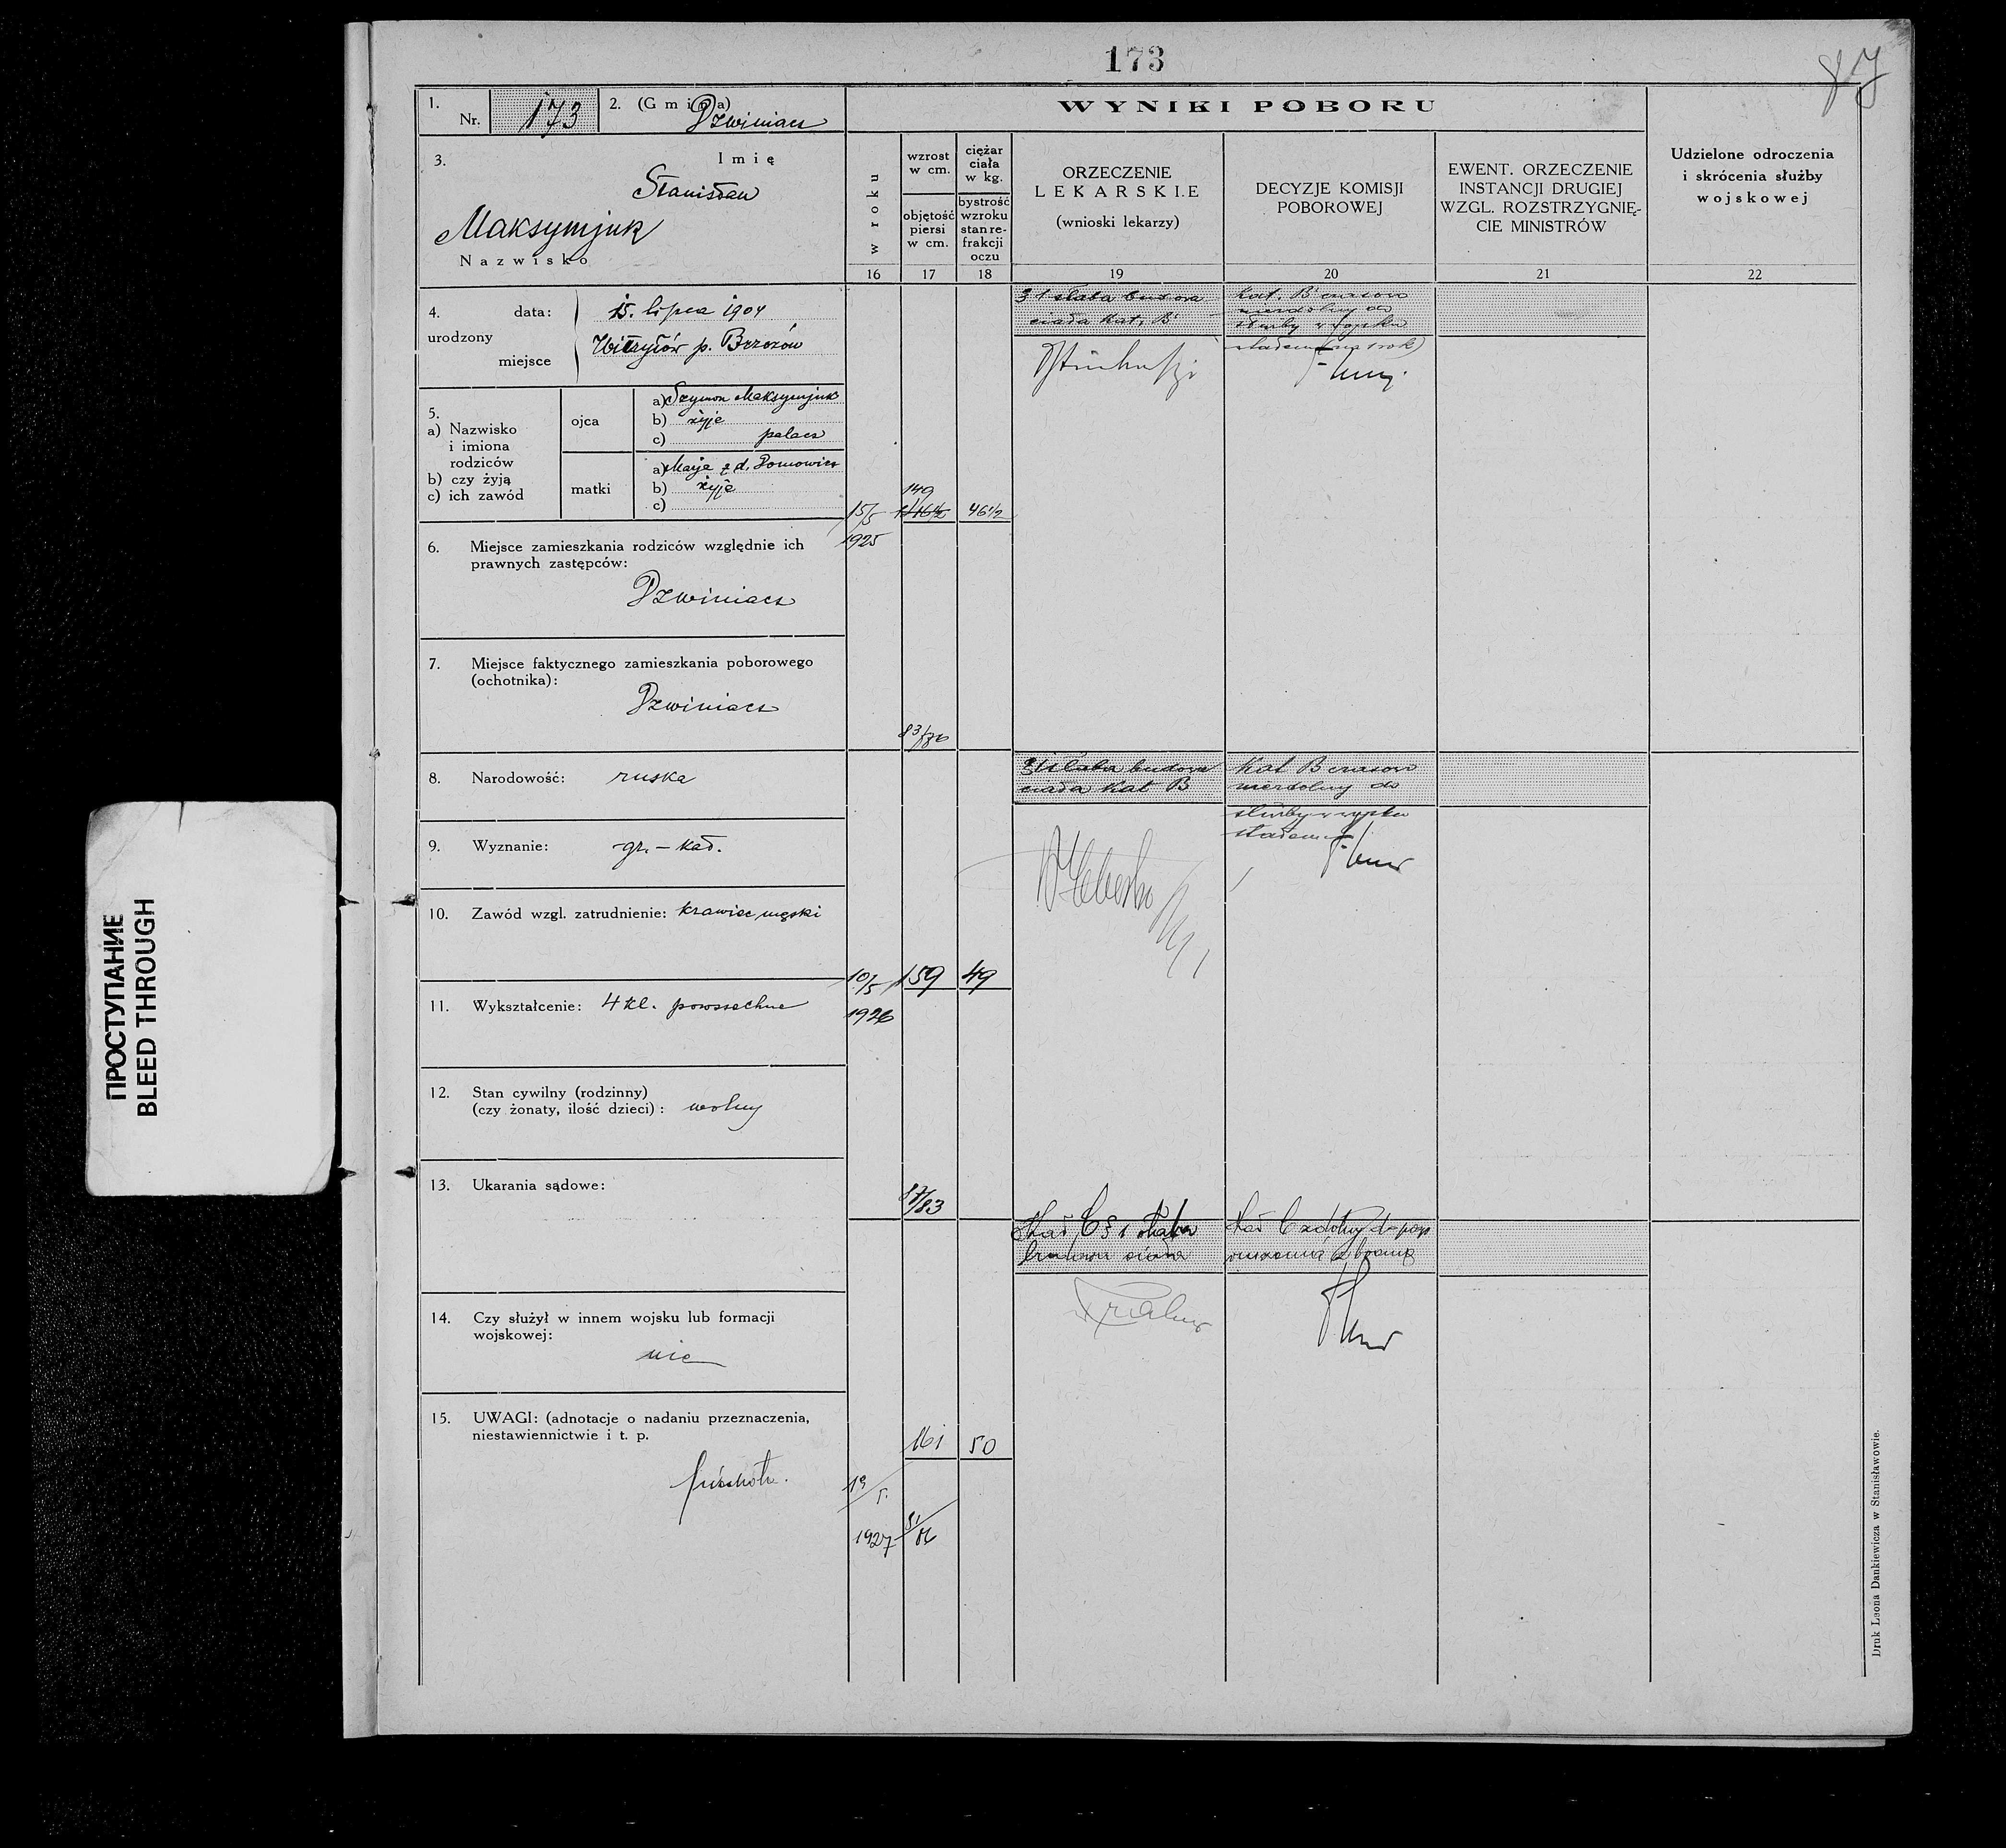 173
87
1.
Nr. 173
2. (Gmina)
Dzwiniacz
WYNIKI POBORU
3.
Imię
Stanisław
Maksymjuk
Nazwisko
w roku
wzrost
w cm.
objętość
piersi
w cm.
ciężar
ciała
w kg.
bystrość
wzroku
stan re-
frakcji
oczu
ORZECZENIE
LEKARSKIE
(wnioski lekarzy)
DECYZJE KOMISJI
POBOROWEJ
EWENT. ORZECZENIE
INSTANCJI DRUGIEJ
WZGL. ROZSTRZYGNIĘ-
CIE MINISTRÓW
Udzielone odroczenia
i skrócenia służby
wojskowej
16 17 18 19 20 21 22
4.
urodzony
data: 15. lipca 1904
miejsce p. Brzozów
5.
a) Nazwisko
i imiona
rodziców
b) czy żyją
c) ich zawód
ojca
a) Szymon Maksymjuk
b) żyje
c) palacz
matki
a) Marja z d.
b) żyje
c)
6. Miejsce zamieszkania rodziców względnie ich
prawnych zastępców:
Dzwiniacz
7. Miejsce faktycznego zamieszkania poborowego
(ochotnika):
Dzwiniacz
8. Narodowość: ruska
9. Wyznanie: gr.-kat.
10. Zawód wzgl. zatrudnienie: krawiec męski
11. Wykształcenie: 4 kl. powszechne
12. Stan cywilny (rodzinny)
(czy żonaty, ilość dzieci): wolny
13. Ukarania sądowe:
14. Czy służył w innem wojsku lub formacji
wojskowej:
nie
15. UWAGI: (adnotacje o nadaniu przeznaczenia,
niestawiennictwie i t. p.
piechota.
15/5
1925
149
46 1/2
§ 1 słaba budowa
ciała Kat. B
Kat. B czasowo
niezdolny do
służby w wojsku
stałem (na 1 rok)
10/5
1926
159
49
§ 1 słaba budowa
ciała Kat B
Kat B czasowo
niezdolny do
służby w wojsku
stałem
19/5.
1927
161
50
Kat C § 1 słaba
budowa ciała
Kat C zdolny do posp
ruszenia z bronią
Druk Leona Dankiewicza w Stanisławowie.
ПРОСТУПАНИЕ
BLEED THROUGH